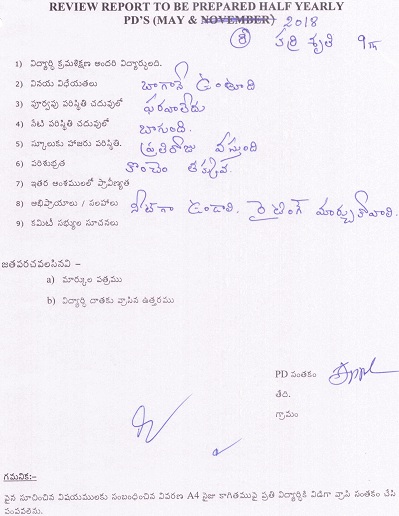 REVIEW REPORT TO BE PREPARED HALF YEARLY
PD'S (MAY & NOVEMBER) 2018
8 పరి కృతి 9th
1) విద్యార్థి క్రమశిక్షణ అందరి విద్యార్థులది.
2) వినయ విధేయతలు బాగానే ఉంటుంది
3) పూర్వపు పరిస్థితి చదువులో పరవాలేదు
4) నేటి పరిస్థితి చదువులో బాగుంది.
5) స్కూలుకు హాజరు పరిస్థితి. ప్రతిరోజు వస్తుంది
6) పరిశుభ్రత కొంచెం తక్కువ.
7) ఇతర అంశములలో ప్రావీణ్యత
8) అభిప్రాయాలు / సలహాలు నీట్‌గా ఉండాలి. రైటింగ్ మార్చుకోవాలి.
9) కమిటీ సభ్యుల సూచనలు
జతపరచవలసినవి –
a) మార్కుల పత్రము
b) విద్యార్థి దాతకు వ్రాసిన ఉత్తరము
PD సంతకం
తేది.
గ్రామం
గమనిక:–
పైన సూచించిన విషయములకు సంబంధించిన వివరణ A4 సైజు కాగితముపై ప్రతి విద్యార్థికి విడిగా వ్రాసి సంతకం చేసి
పంపవలెను.